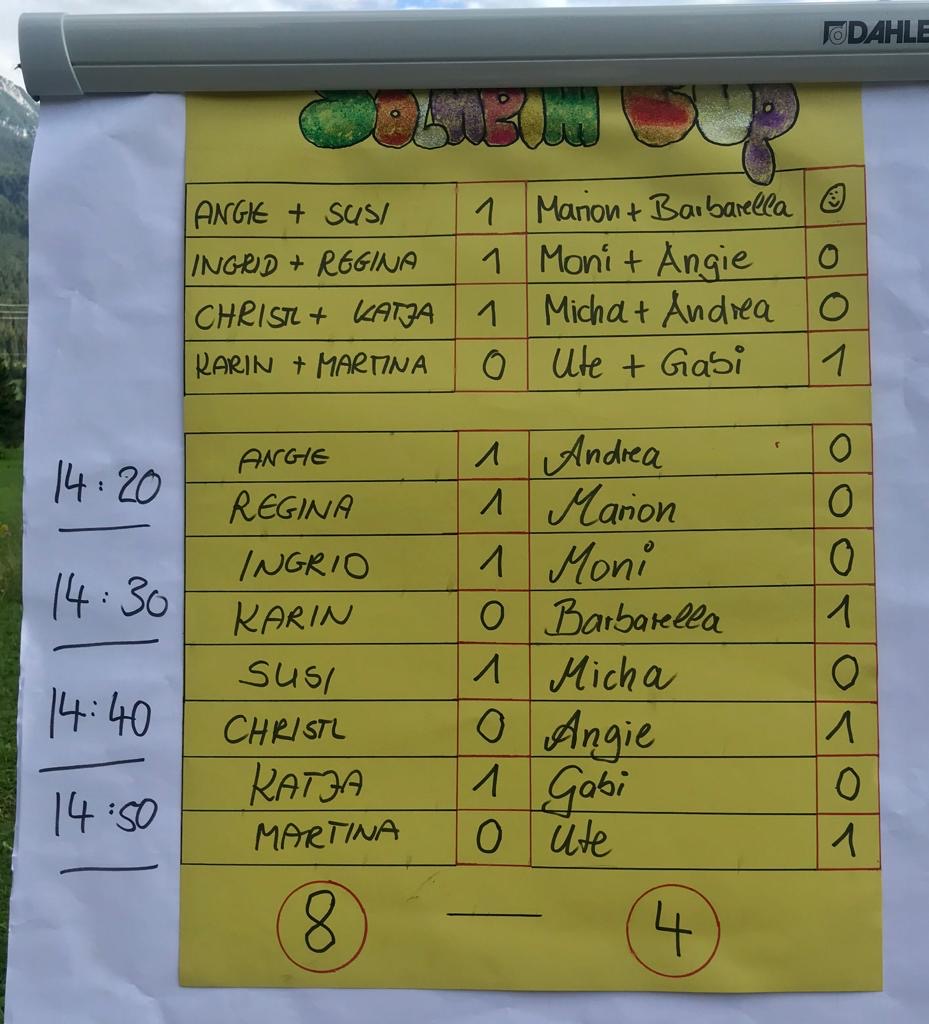 DAHLE
SOLHEIM CUP
ANGIE + SUSI 1 Marion + Barbarella 0
INGRID + REGINA 1 Moni + Angie 0
CHRISTL + KATJA 1 Micha + Andrea 0
KARIN + MARTINA 0 Ute + Gabi 1
ANGIE 1 Andrea 0
14:20
REGINA 1 Marion 0
INGRID 1 Moni 0
14:30
KARIN 0 Barbarella 1
SUSI 1 Micha 0
14:40
CHRISTL 0 Angie 1
KATJA 1 Gabi 0
14:50
MARTINA 0 Ute 1
8 — 4